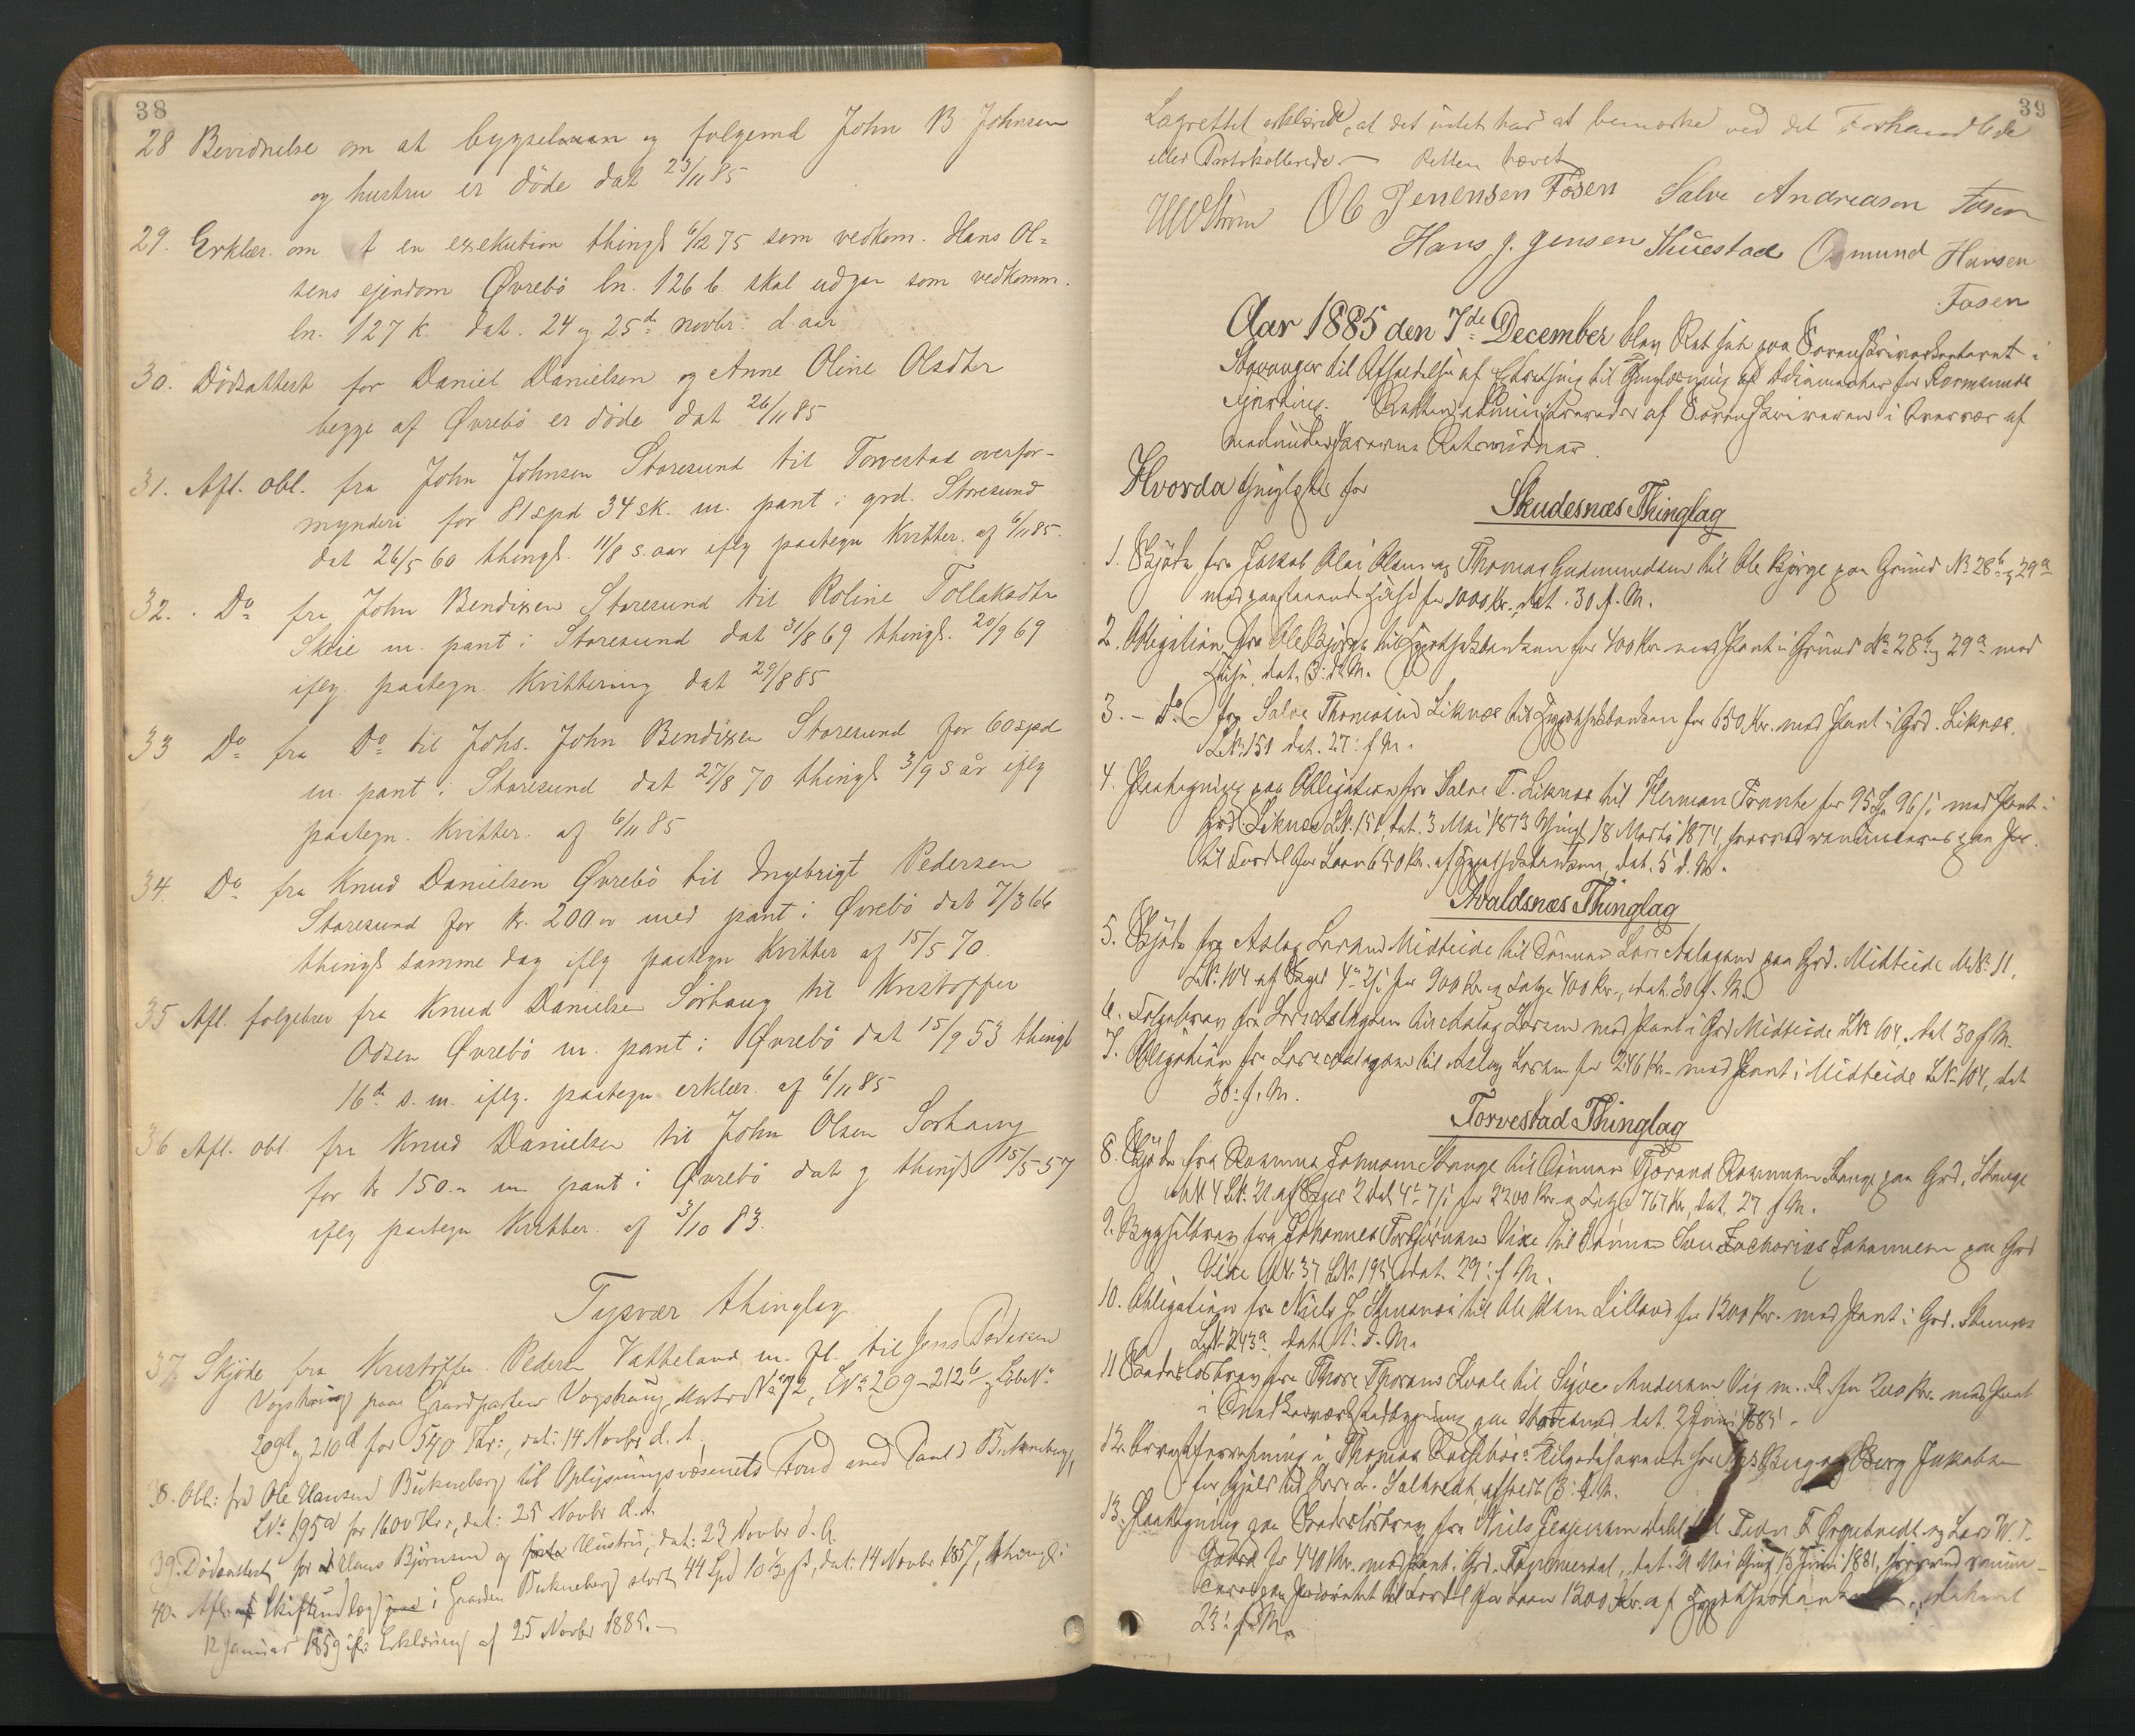 38
28 Bevidnelse om at bygselman og folgemd John B Johnsen
og hustru er döde dat 23/11 85
29. Erklær. om t en exekution thingl 6/12 75 som vedkom. Hans Ol=
sens ejendom Øvrebö ln. 126 b. skal udgaa som vedkomm.
ln. 127 k. dat. 24 og 25de novbr. d. aar
30. Dödsattest for Daniel Danielsen og Anne Oline Olsdtr
begge af Øvrebö er döde dat 26/11 85
31. Afl. obl. fra John Johnsen Storesund til Torvestad overfor-
mynderi for 81 spd 34 sk. m. pant i grd. Storesund
dat 26/5 60 thingl. 11/8 s. aar iflg paategn Kvitter. af 6/11 85.
32. Do fra John Bendixen Storesund til Roline Tollaksdtr
Skeie m. pant i Storesund dat 31/8 69 thingl. 20/9 69
iflg. paategn. Kvittering dat 29/8 85
33 Do fra Do til Johs. John Bendixen Storesund for 60 spd
m. pant i Storesund dat 27/8 70 thingl 3/9 s år iflg
paategn. Kvitter. af 6/11 85
34. Do fra Knud Danielsen Øvrebö til Ingebrigt Pedersen
Storesund for kr. 200.00 med pant i Øvrebö dat 7/3 66
thingl samme dag iflg paategn Kvitter af 15/5 70.
35 Afl. folgebrev fra Knud Danielsen Sörhaug til Kristoffer
Odsen Øvrebö m. pant i Øvrebö dat 15/9 53 thingl
16de s. m. iflg. paategn erklær. af 6/11 85
36 Afl. obl. fra Knud Danielsen til John Olsen Sorhaug
for kr 150.- m pant i Øvrebö dat og thingl 15/5 57
iflg paategn Kvitter. af 3/10 83.
Tysvær thinglag.
37. Skjöde fra Kristoffer Pedersen Vatteland m. fl. til Jens Pedersen
Vogshaug paa Gaardparten Vogshaug, Matr No 72, LNo 209-212b og LöbeNo
209d og 210d for 540 Kr:, dat: 14 Novbr d. A.
38. Obl: fra Ole Hansen Bukneberg til Oplysningsvæsenets Fond med Pant i Bukneberg,
LNo 195a for 1600 Kr., dat: 25 Novbr d. A.
39. Dödsattest for Hans Björnsen og Hustru, dat: 23 Novbr d. A.
40. Afl: Skifteudlæg i Gaarden Bukneberg stort 44 Spd 10 1/2 ß, dat: 14 Novbr 1857, thingl:
12 Januar 1859 ifl: Erklæring af 25 Novbr 1885.-
39
Lagrettet erklærede, at det intet har at bemærke ved det Forhandlede
eller Protokollerede. - Retten hævet
Ström Ole Jenensen Fosen Salve Andreason Fosen
Hans J. Jensen Thuestad Osmund Hansen
Fosen
Aar 1885 den 7de December blev Ret sat paa Sorenskriverkontoret i
Stavanger til Afholdelse af Extrathing til Thinglæsning af Dokumenter for Karmsunds
Retten administreredes af Sorenskriveren i Overvær af
medunderskrevne Retsvidner.
Hvorda thinglæstes for
Skudesnæs Thinglag
1. Skjöde fra Jakob Olai Olsen og Thomas Gudmundsen til Ole Bjorge paa Grund No 28b og 29a
med paastaaende Huse for 1000 Kr., dat. 30 f. M.
2. Obligation fra Ole Bjorge til Hypothekbanken for 400 Kr. med Pant i Grund No 28b og 29a med
Huse, dat. 3: d. M.
3. - Do - fra Salve Thomasen Liknes til Hypothekbanken for 650 Kr. med Pant i Grd. Liknes,
LNo. 151 dat. 27: f M.
4. Paategning paa Obligation fra Salve T. Liknes til Herman Trante for 95 Sp 96 ß med Pant i
Grd Liknes LNo. 151, dat. 3 Mai 1873 thingl 18 Marts 1874, hvorved
til Fordel for Laan 650 Kr. af Hypothekbanken, dat. 5 d. M.
Avaldsnæs Thinglag
5. Skjöde fra Aslag Larsen Midteide til Sönnen Lars Aslagsen paa Grd. Midteide MNo. 11,
LNo. 104 af Skyld 4 ort 2 ß for 900 Kr. og 400 Kr., dat. 30 f. M.
6. Folgebrev fra Lars Aslagsen til Aslag Larsen med Pant i Grd Midteide LNo 104, dat 30 f. M.
7. Obligation fra Lars Aslagsen til Aslag Larsen for 246 Kr. med Pant i Midteide LNo 104, dat
30: f. M.
Torvestad Thinglag
8. Skjöde fra Rasmus Johnsen Stange til Sönnen Tjerand Rasmussen Stange paa Grd. Stange
MNo 4 LNo. 21 af Skyld 2 dal 4 ort 7 ß for 2200 Kr. og 767 Kr, dat. 27 f M.
9. Bygselbrev fra Johannes Torbjörnsen Vike til Sönnen Zacharias Johannesen paa Grd
Vike MNo 37 LNo. 195, dat. 29: f M.
10. Obligation fra Niels J. til Ole Olsen Lilland for 1200 Kr. med Pant i Grd.
LNo 243a, dat. 1: d. M.
11 Skadeslösbrev fra Thore Thorsen Hvale til Sigve Andersen Vig m. fl. for 200 Kr. med Pant
i paa Storesund, dat. 2 Juni 1885.
12. i Thomas Berg Jakobsen
for Gjæld til
13. Paategning paa Skadeslösbrev fra Niels Dahl til og Lars W. T.
Gaard for 440 Kr. med Pant i Grd. dat. 21 Mai thingl 15 Juni 1881, hvorved
til Fordel for Laan 1200 Kr. af
23: f. M.